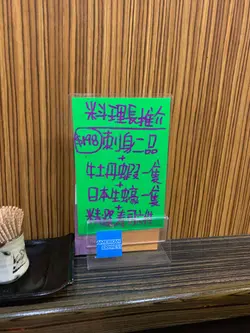 料理長推介
$198 刺身二品
+
牡丹蝦一隻
+
日本生蠔一隻
+
AMERICAN EXPRESS